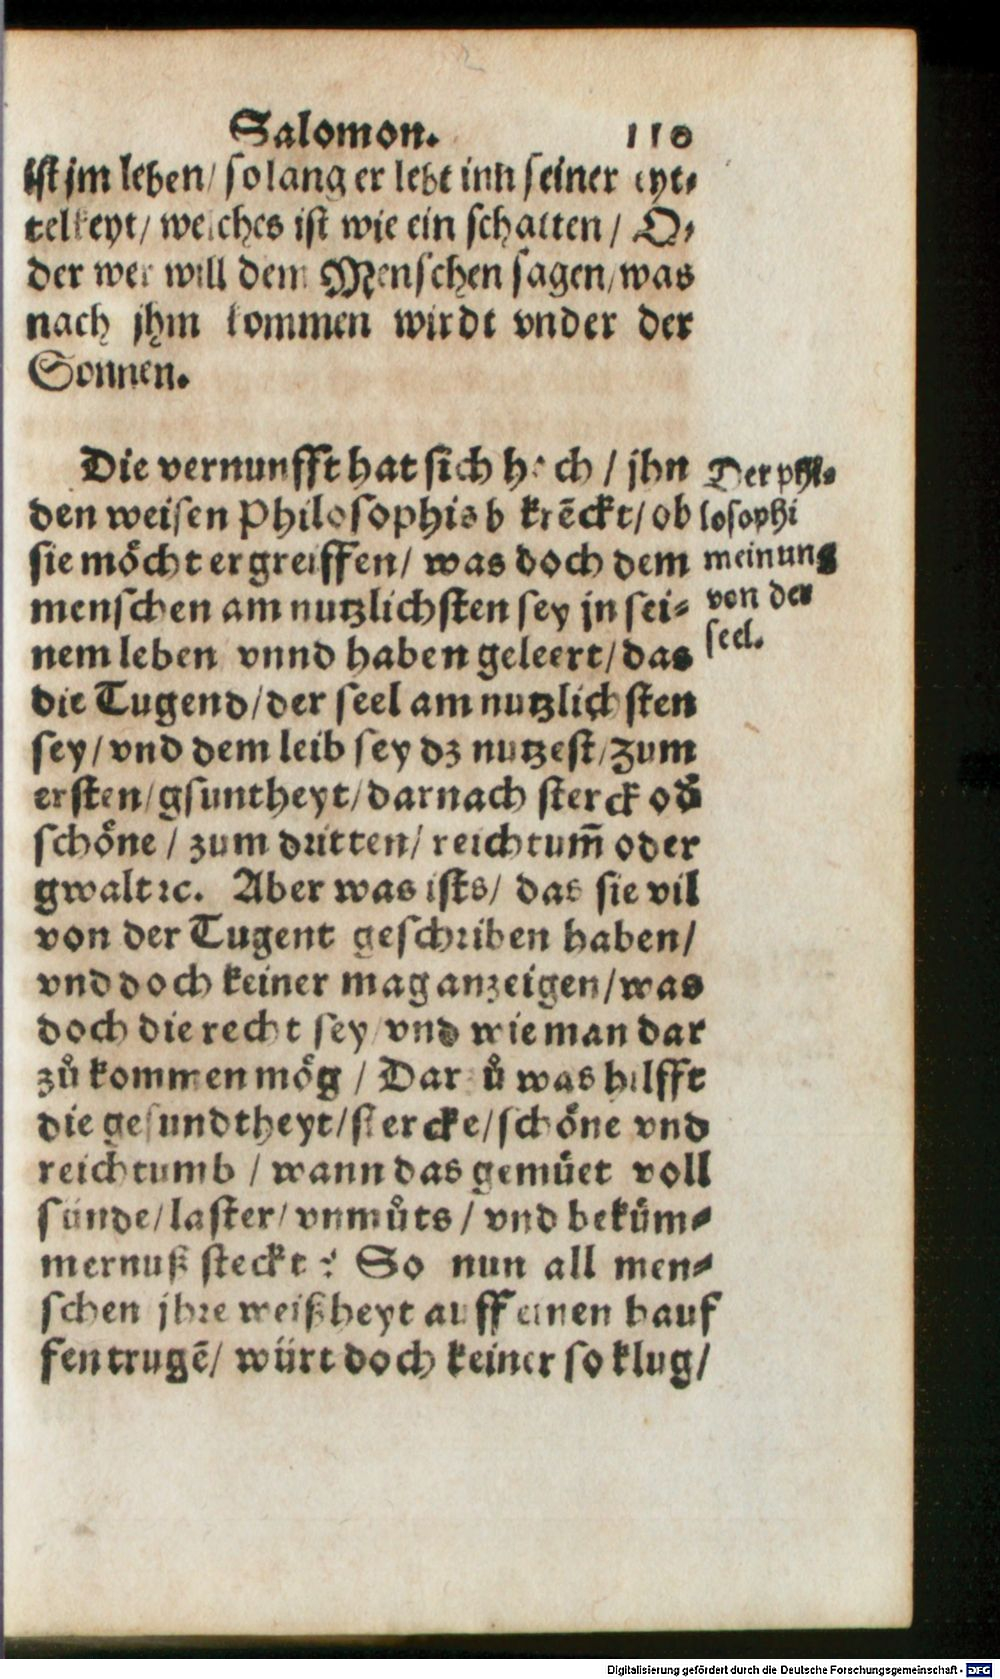 Salomon. 110
ist jm leben/ so lang er lebt inn seiner eyt⸗
telkeyt/ welches ist wie ein schatten/ O⸗
der wer will dem Menschen sagen/ was
nach jhm kommen wirdt vnder der
Sonnen.
Die vernunfft hat sich hoch/ jhn
den weisen Philosophis bkrẽckt/ ob
sie möcht ergreiffen/ was doch dem
menschen am nutzlichsten sey jn sei⸗
nem leben vnnd haben geleert/ das
die Tugend/ der seel am nutzlichsten
sey/ vnd dem leib sey dz nutzest/ zum
ersten/ gsuntheyt/ darnach sterck od̕
schöne/ zum dritten/ reichtum̃ oder
gwalt ꝛc. Aber was ists/ das sie vil
von der Tugent geschriben haben/
vnd doch keiner mag anzeigen/ was
doch die recht sey vnd wie man dar
zů kommen mög/ Darzů was hilfft
die gesundtheyt/ stercke/ schöne vnd
reichtumb/ wann das gemüet voll
sünde/ laster/ vnmůts/ vnd beküm⸗
mernuß steckt? So nun all men⸗
schen jhre weißheyt auff einen hauf
fen trugẽ/ würt doch keiner so klug/
Der phi⸗
losophi
meinung
von der
seel.
Digitalisierung gefördert durch die Deutsche Forschungsgemeinschaft - DFG